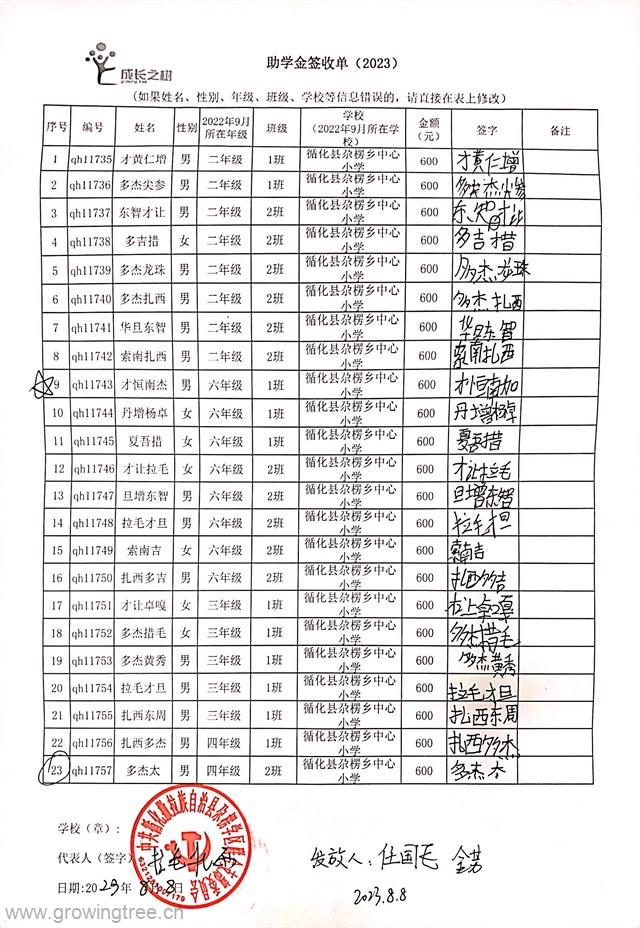 成长之树
growing tree
助学金签收单（2023）
(如果姓名、性别、年级、班级、学校等信息错误的，请直接在表上修改)
序号 编号 姓名 性别 2022年9月所在年级 班级 学校（2022年9月所在学校） 金额（元） 签字 备注
1 qh11735 才黄仁增 男 二年级 1班 循化县尕楞乡中心小学 600 才黄仁增
2 qh11736 多杰尖参 男 二年级 1班 循化县尕楞乡中心小学 600 多杰尖参
3 qh11737 东智才让 男 二年级 2班 循化县尕楞乡中心小学 600 东知才让
4 qh11738 多吉措 女 二年级 2班 循化县尕楞乡中心小学 600 多吉措
5 qh11739 多杰龙珠 男 二年级 2班 循化县尕楞乡中心小学 600 多杰龙珠
6 qh11740 多杰扎西 男 二年级 2班 循化县尕楞乡中心小学 600 多杰扎西
7 qh11741 华旦东智 男 二年级 2班 循化县尕楞乡中心小学 600 华旦东智
8 qh11742 索南扎西 男 二年级 2班 循化县尕楞乡中心小学 600 索南扎西
9 qh11743 才恒南杰 男 六年级 1班 循化县尕楞乡中心小学 600 才恒南加
10 qh11744 丹增杨卓 女 六年级 1班 循化县尕楞乡中心小学 600 丹增杨卓
11 qh11745 夏吾措 女 六年级 1班 循化县尕楞乡中心小学 600 夏吾措
12 qh11746 才让拉毛 女 六年级 2班 循化县尕楞乡中心小学 600 才让拉毛
13 qh11747 旦增东智 男 六年级 2班 循化县尕楞乡中心小学 600 旦增东智
14 qh11748 拉毛才旦 男 六年级 2班 循化县尕楞乡中心小学 600 拉毛才旦
15 qh11749 索南吉 女 六年级 2班 循化县尕楞乡中心小学 600 索南吉
16 qh11750 扎西多吉 男 六年级 2班 循化县尕楞乡中心小学 600 扎西多吉
17 qh11751 才让卓嘎 女 三年级 1班 循化县尕楞乡中心小学 600
18 qh11752 多杰措毛 女 三年级 1班 循化县尕楞乡中心小学 600 多杰措毛
19 qh11753 多杰黄秀 男 三年级 1班 循化县尕楞乡中心小学 600 多杰黄秀
20 qh11754 拉毛才旦 男 三年级 1班 循化县尕楞乡中心小学 600 拉毛才旦
21 qh11755 扎西东周 男 三年级 1班 循化县尕楞乡中心小学 600 扎西东周
22 qh11756 扎西多杰 男 四年级 1班 循化县尕楞乡中心小学 600 扎西多杰
23 qh11757 多杰太 男 四年级 2班 循化县尕楞乡中心小学 600 多杰太
学校（章）:
代表人（签字）
发放人: 任国毛
日期:2023年 8月8日
2023.8.8
www.growingtree.cn